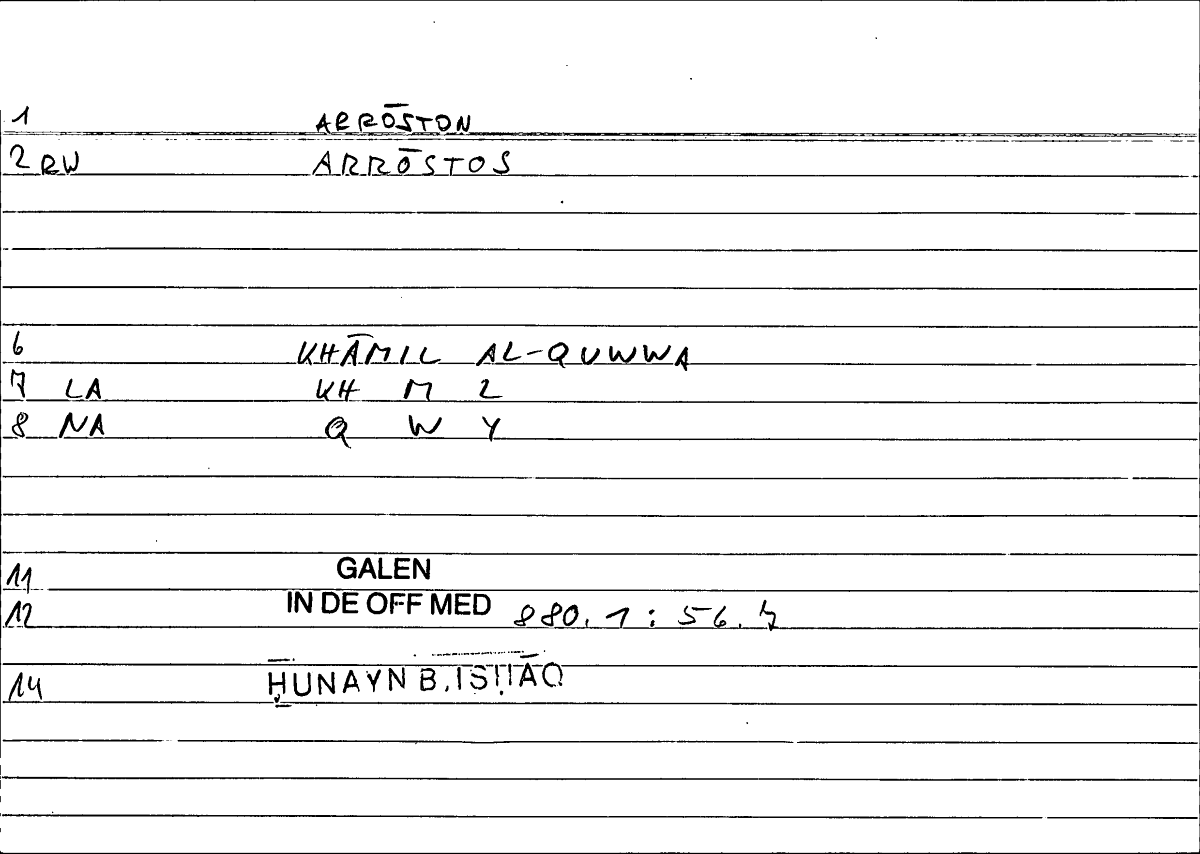 1 ARRŌSTON
2 RW ARRŌSTOS
6 KHĀMIL AL-QUWWA
7 LA KH M L
8 NA Q W Y
11 GALEN
12 IN DE OFF MED 880.1:56.7
14 ḤUNAYN B. ISḤĀQ